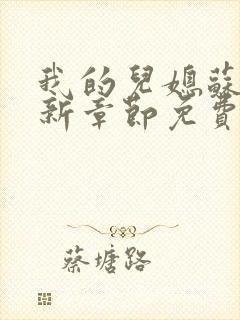 我的兒媳蘇
新章節免費
蔡塘路